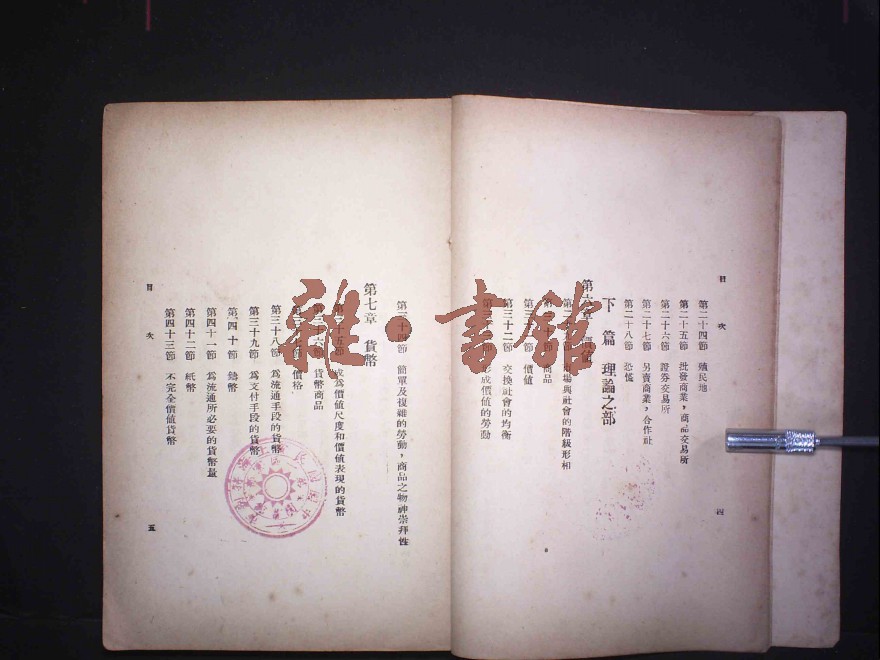 目次
第二十四節 殖民地
第二十五節 批發商業，商品交易所
第二十六節 證券交易所
第二十七節 另賣商業，合作社
第二十八節 恐慌
下篇 理論之部
第六章 價值
市場與社會的階級形相
商品
價值
第三十二節 交換社會的均衡
形成價值的勞動
四
第三十四節 簡單及複雜的勞動，商品之物神崇拜性
第七章 貨幣
第三十五節 成為價值尺度和價值表現的貨幣
第三十六節 貨幣商品
第三十七節 價格
第三十八節 為流通手段的貨幣
第三十九節 為支付手段的貨幣
第四十節 鑄幣
第四十一節 為流通所必要的貨幣量
第四十二節 紙幣
第四十三節 不完全價值貨幣
目次
五
雜·書館